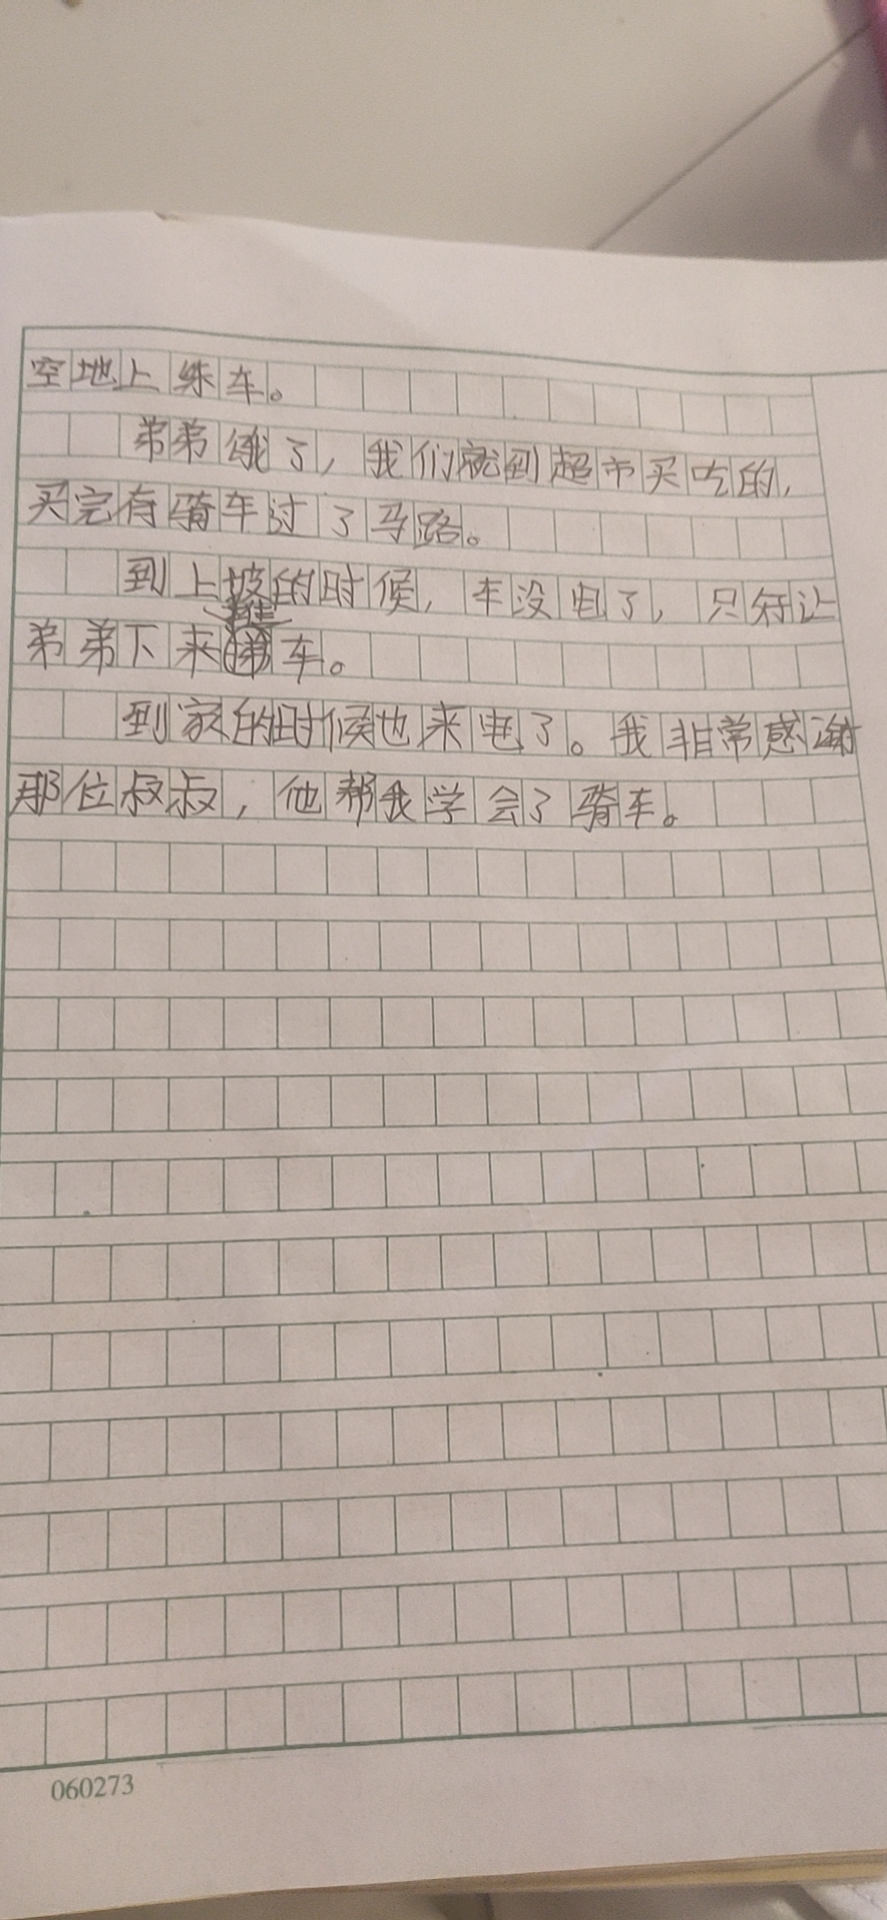 空地上练车。
弟弟饿了，我们就到超市买吃的，
买完存骑车过了马路。
到上坡的时候，车没电了，只好让
弟弟下来推车。
到家的时候也来电了。我非常感谢
那位叔叔，他帮我学会了骑车。
060273